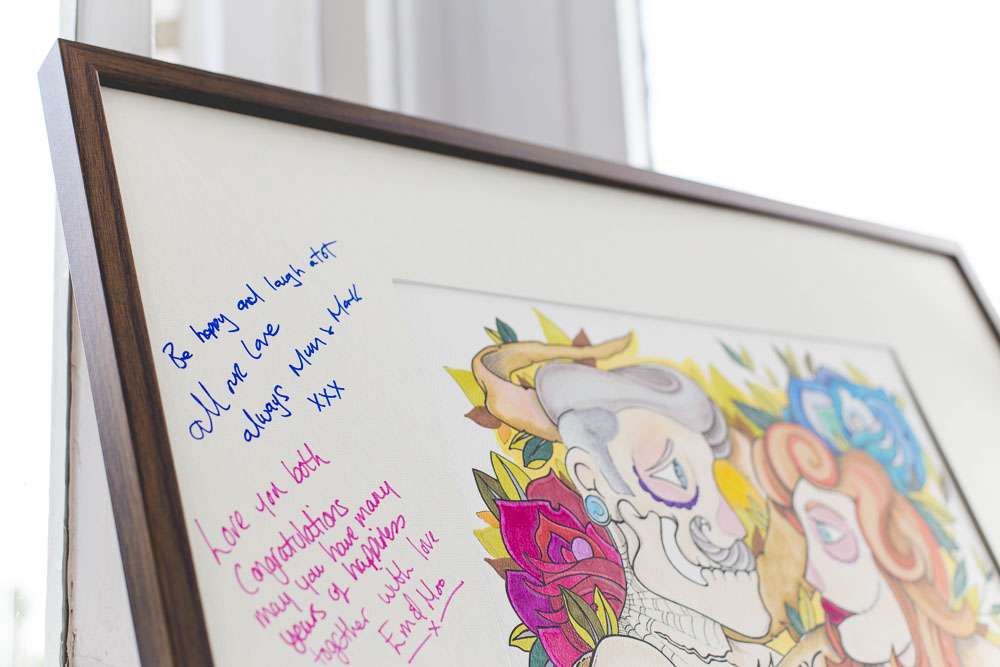 Be happy and laugh alot
All our love
always Mum & Mark
xxx
Love you both
Congratulations
may you have many
years of happiness
together with love
Em & Moo
x